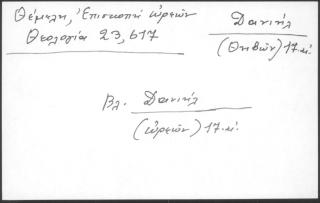 Θέμελη, Ἐπισκοπή Ὠρεῶν
Θεολογία 23, 617
Δανιήλ
(Θηβῶν) 17.αἰ.
Βλ. Δανιήλ
(Ὠρεῶν) 17.αἰ.